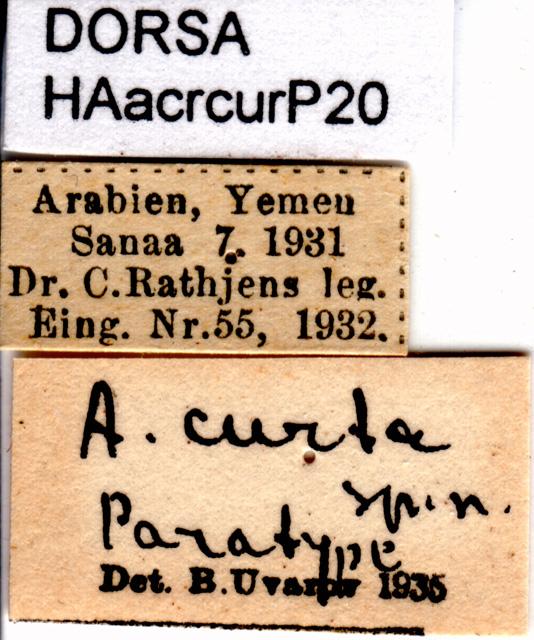 DORSA
HAacrcurP20
Arabien, Yemen
Sanaa 7. 1931
Dr. C.Rathjens leg.
Eing. Nr.55, 1932.
A. curta
sp. n.
Paratype
Det. B. Uvarov 1935